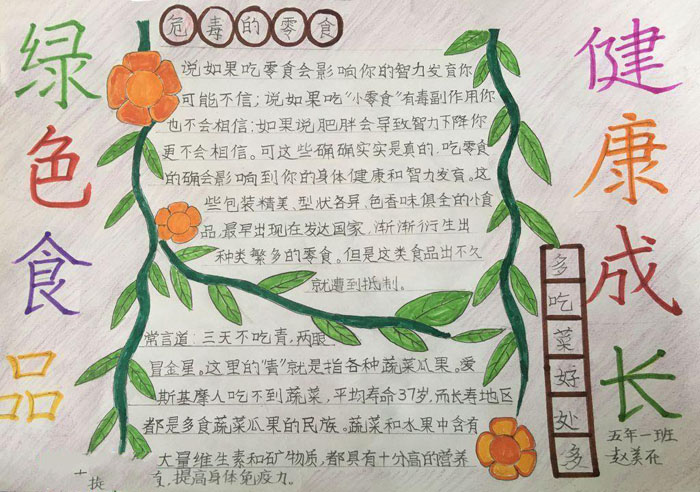 绿色食品
健康成长
危毒的零食
说如果吃零食会影响你的智力发育你
可能不信；说如果吃“小零食”有毒副作用你
也不会相信；如果说肥胖会导致智力下降你
更不会相信。可这些确确实实是真的，吃零食
的确会影响到你的身体健康和智力发育。这
些包装精美、型状各异、色香味俱全的小食
品，最早出现在发达国家，渐渐衍生出
种类繁多的零食。但是这类食品出不久
就遭到抵制。
多吃菜好处多
常言道：三天不吃青，两眼
冒金星。这里的“青”就是指各种蔬菜瓜果。爱
斯基摩人吃不到蔬菜，平均寿命37岁，而长寿地区
都是多食蔬菜瓜果的民族。蔬菜和水果中含有
大量维生素和矿物质，都具有十分高的营养
提高身体免疫力。
五年一班
赵美